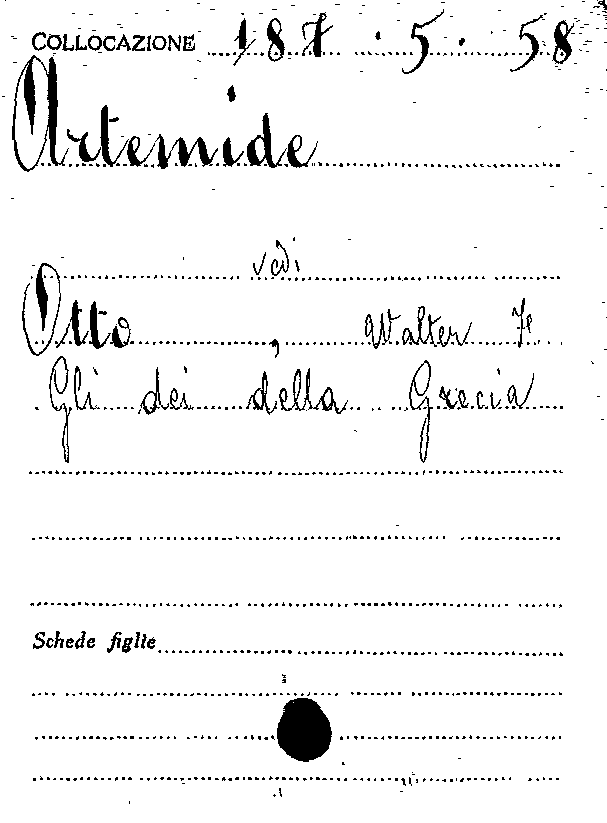 COLLOCAZIONE 187.5.58
Artemide
vedi
Otto, Walter F.
Gli dei della Grecia
Schede figlie